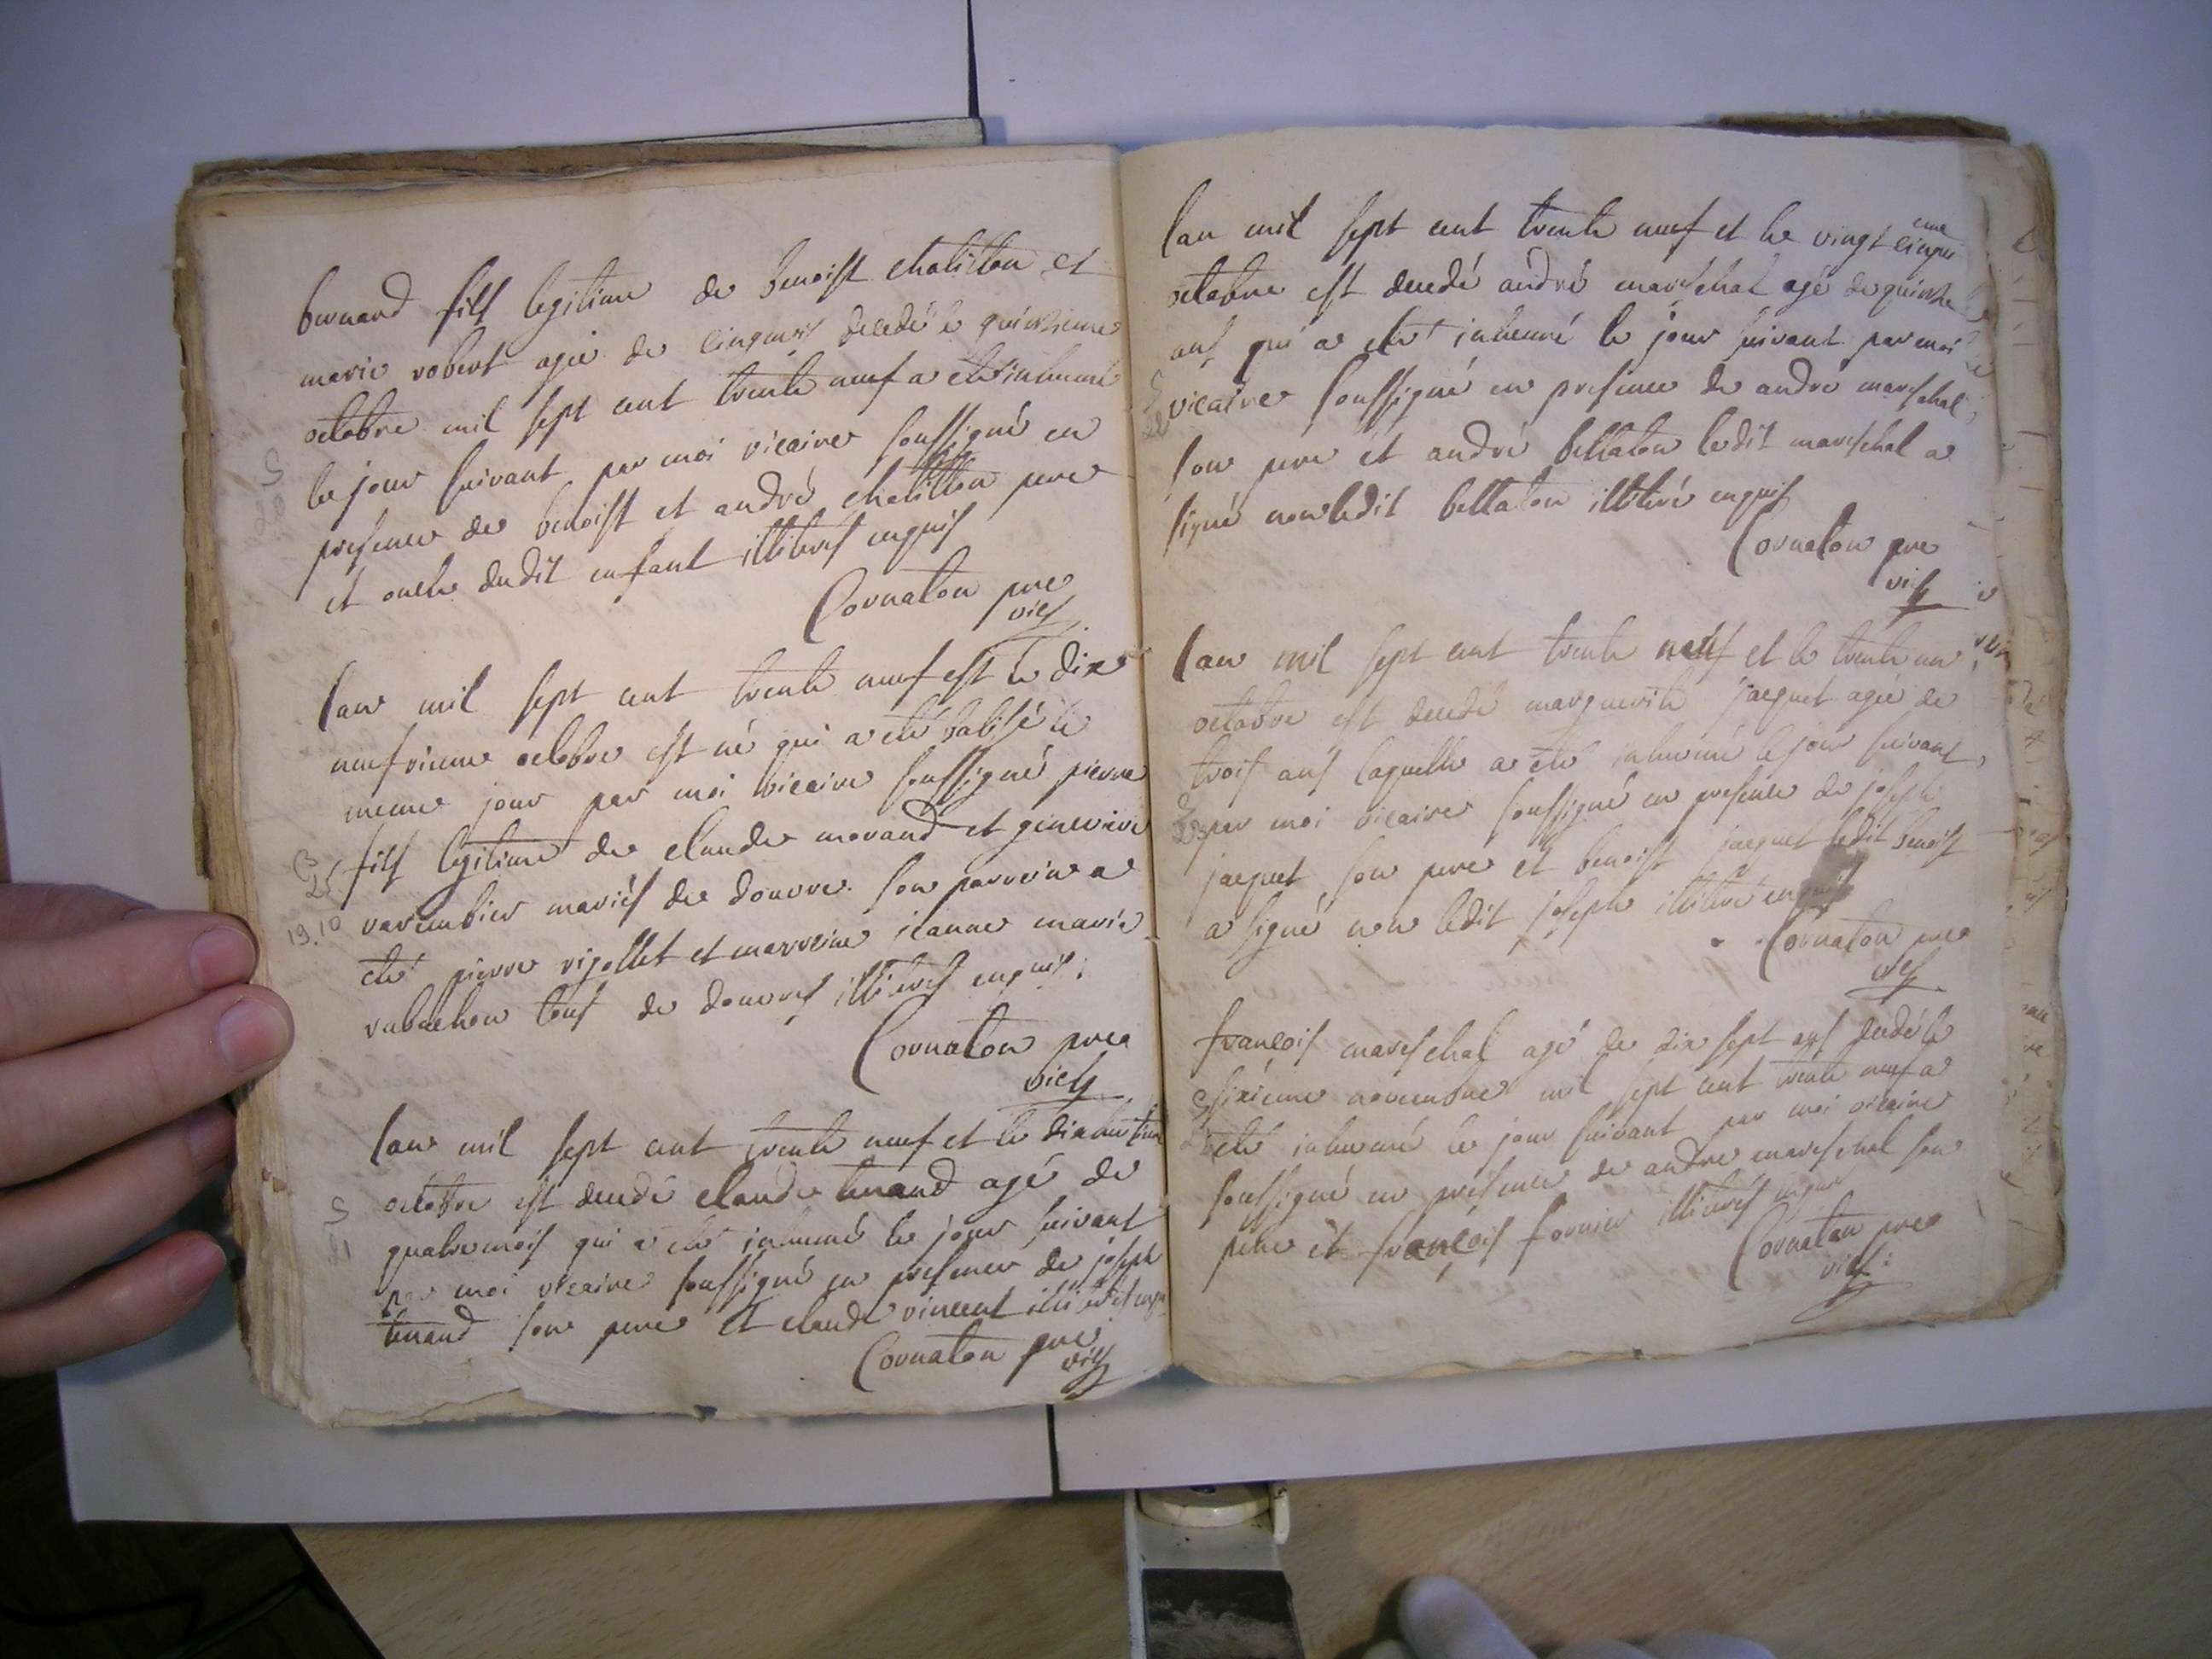 bernard fils legitime de benoist chatillon et
marie robert agé de cinq mois decedé le quinzieme
octobre mil sept cent trente neuf a eté inhumé
le jour suivant par moi vicaire soussigné en
presence de benoist et andré chatillon pere
et oncle dudit enfant illiterés enquis
Cornaton pre
vic
lan mil sept cent trente neuf est le dix
neufvieme octobre est né qui a eté batisé le
meme jour par moi vicaire soussigné pierre
fils legitime de claude morand et genevive
B
25
19.10
varembier mariés de douvre son parrein a
eté pierre rigollet et marreine jeanne marie
rabuchon tous de douvres illiterés enquis
Cornaton pre
vic
lan mil sept cent trente neuf et le dix huitieme
octobre est decedé claude tenand agé de
quatre mois qui a eté inhumé le jour suivant
par moi vicaire soussigné en presence de joseph
tenand son pere et claude vincent illiterés enquis
Cornaton pre
vic
lan mil sept cent trente neuf et le vingt cinquieme
octobre est decedé andré mareschal agé de quinze
ans qui a eté inhumé le jour suivant par moi
vicaire soussigné en presence de andré mareschal
son pere et andré bellaton ledit mareschal a
signé non ledit bellaton illiteré enquis
Cornaton pre
vic
lan mil sept cent trente neuf et le trente un
octobre est decedé marguerite jacquet agée de
trois ans laquelle a eté inhumé le jour suivant
par moi vicaire soussigné en presence de joseph
jacquet son pere et benoist jacquet ledit benoist
a signé non ledit joseph illiteré enquis
Cornaton pre
vic
francois mareschal agé de dix sept ans decedé le
sixieme novembre mil sept cent trente neuf a
eté inhumé le jour suivant par moi vicaire
soussigné en presence de andre mareschal son
pere et francois fornier illiterés enquis
Cornaton pre
vic